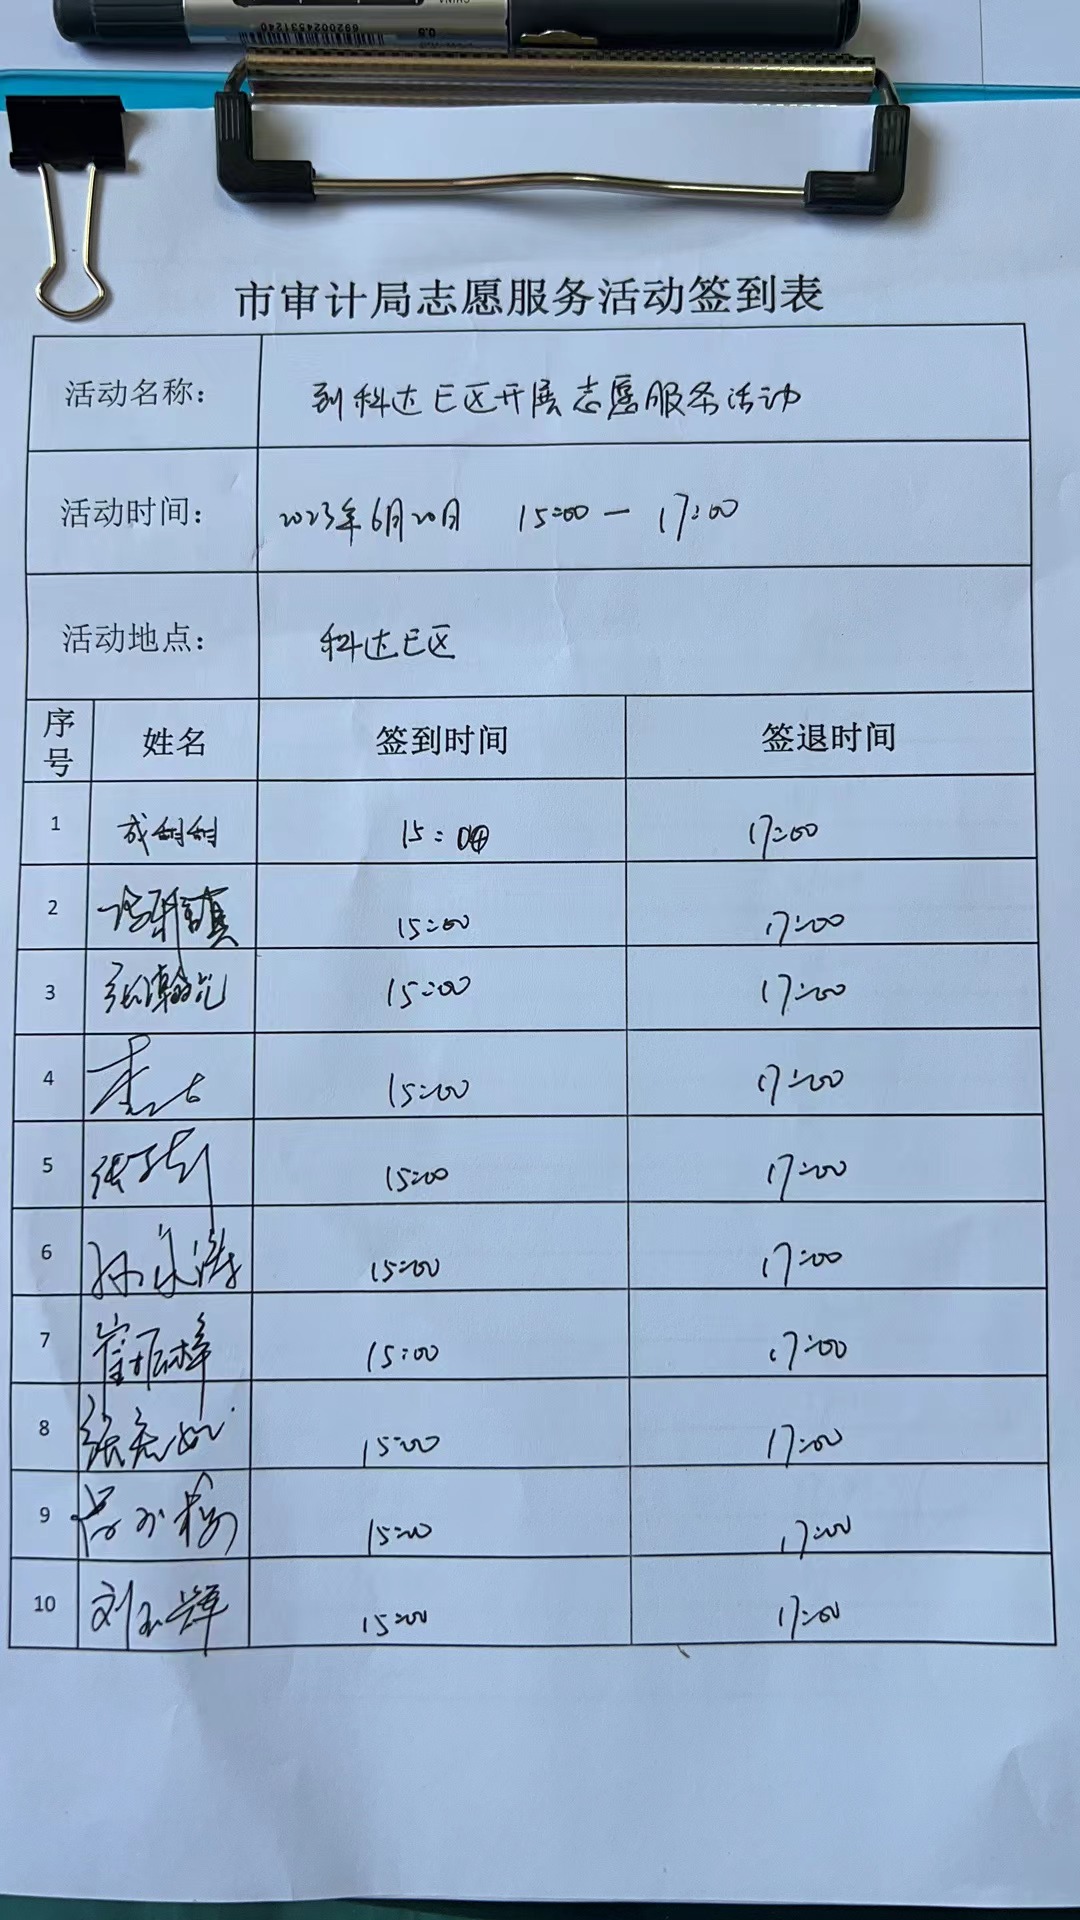 6920024531240
0.5
市审计局志愿服务活动签到表
活动名称： 到科达E区开展志愿服务活动
活动时间： 2023年6月20日 15:00 — 17:00
活动地点： 科达E区
序号 姓名 签到时间 签退时间
1 成甜甜 15:00 17:00
2 15:00 17:00
3 张瀚元 15:00 17:00
4 15:00 17:00
5 张 15:00 17:00
6 孙 15:00 17:00
7 崔 梓 15:00 17:00
8 张 15:00 17:00
9 15:00 17:00
10 刘玉辉 15:00 17:00